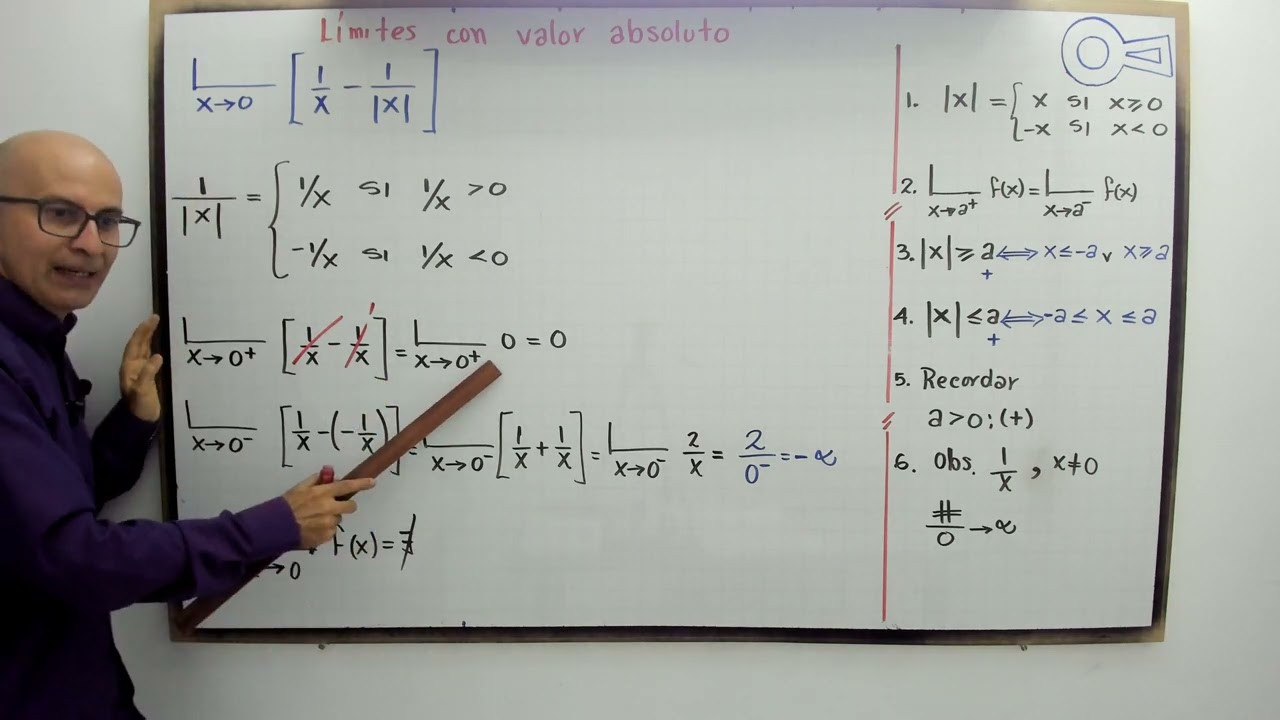 Límites con valor absoluto
L x→0 [1/x − 1/|x|]
1/|x| = { 1/x si 1/x > 0
−1/x si 1/x < 0
L x→0⁺ [1/x − 1/x] = L x→0⁺ 0 = 0
L x→0⁻ [1/x − (−1/x)] = L x→0⁻ [1/x + 1/x] = L x→0⁻ 2/x = 2/0⁻ = −∞
→0 f(x) = ∄
1. |x| = { x si x ≥ 0
−x si x < 0
2. L x→a⁺ f(x) = L x→a⁻ f(x)
3. |x| ≥ a ⟺ x ≤ −a ∨ x ≥ a
+
4. |x| ≤ a ⟺ −a ≤ x ≤ a
+
5. Recordar
a > 0 ; (+)
6. Obs. 1/x , x ≠ 0
#/0 → ∞